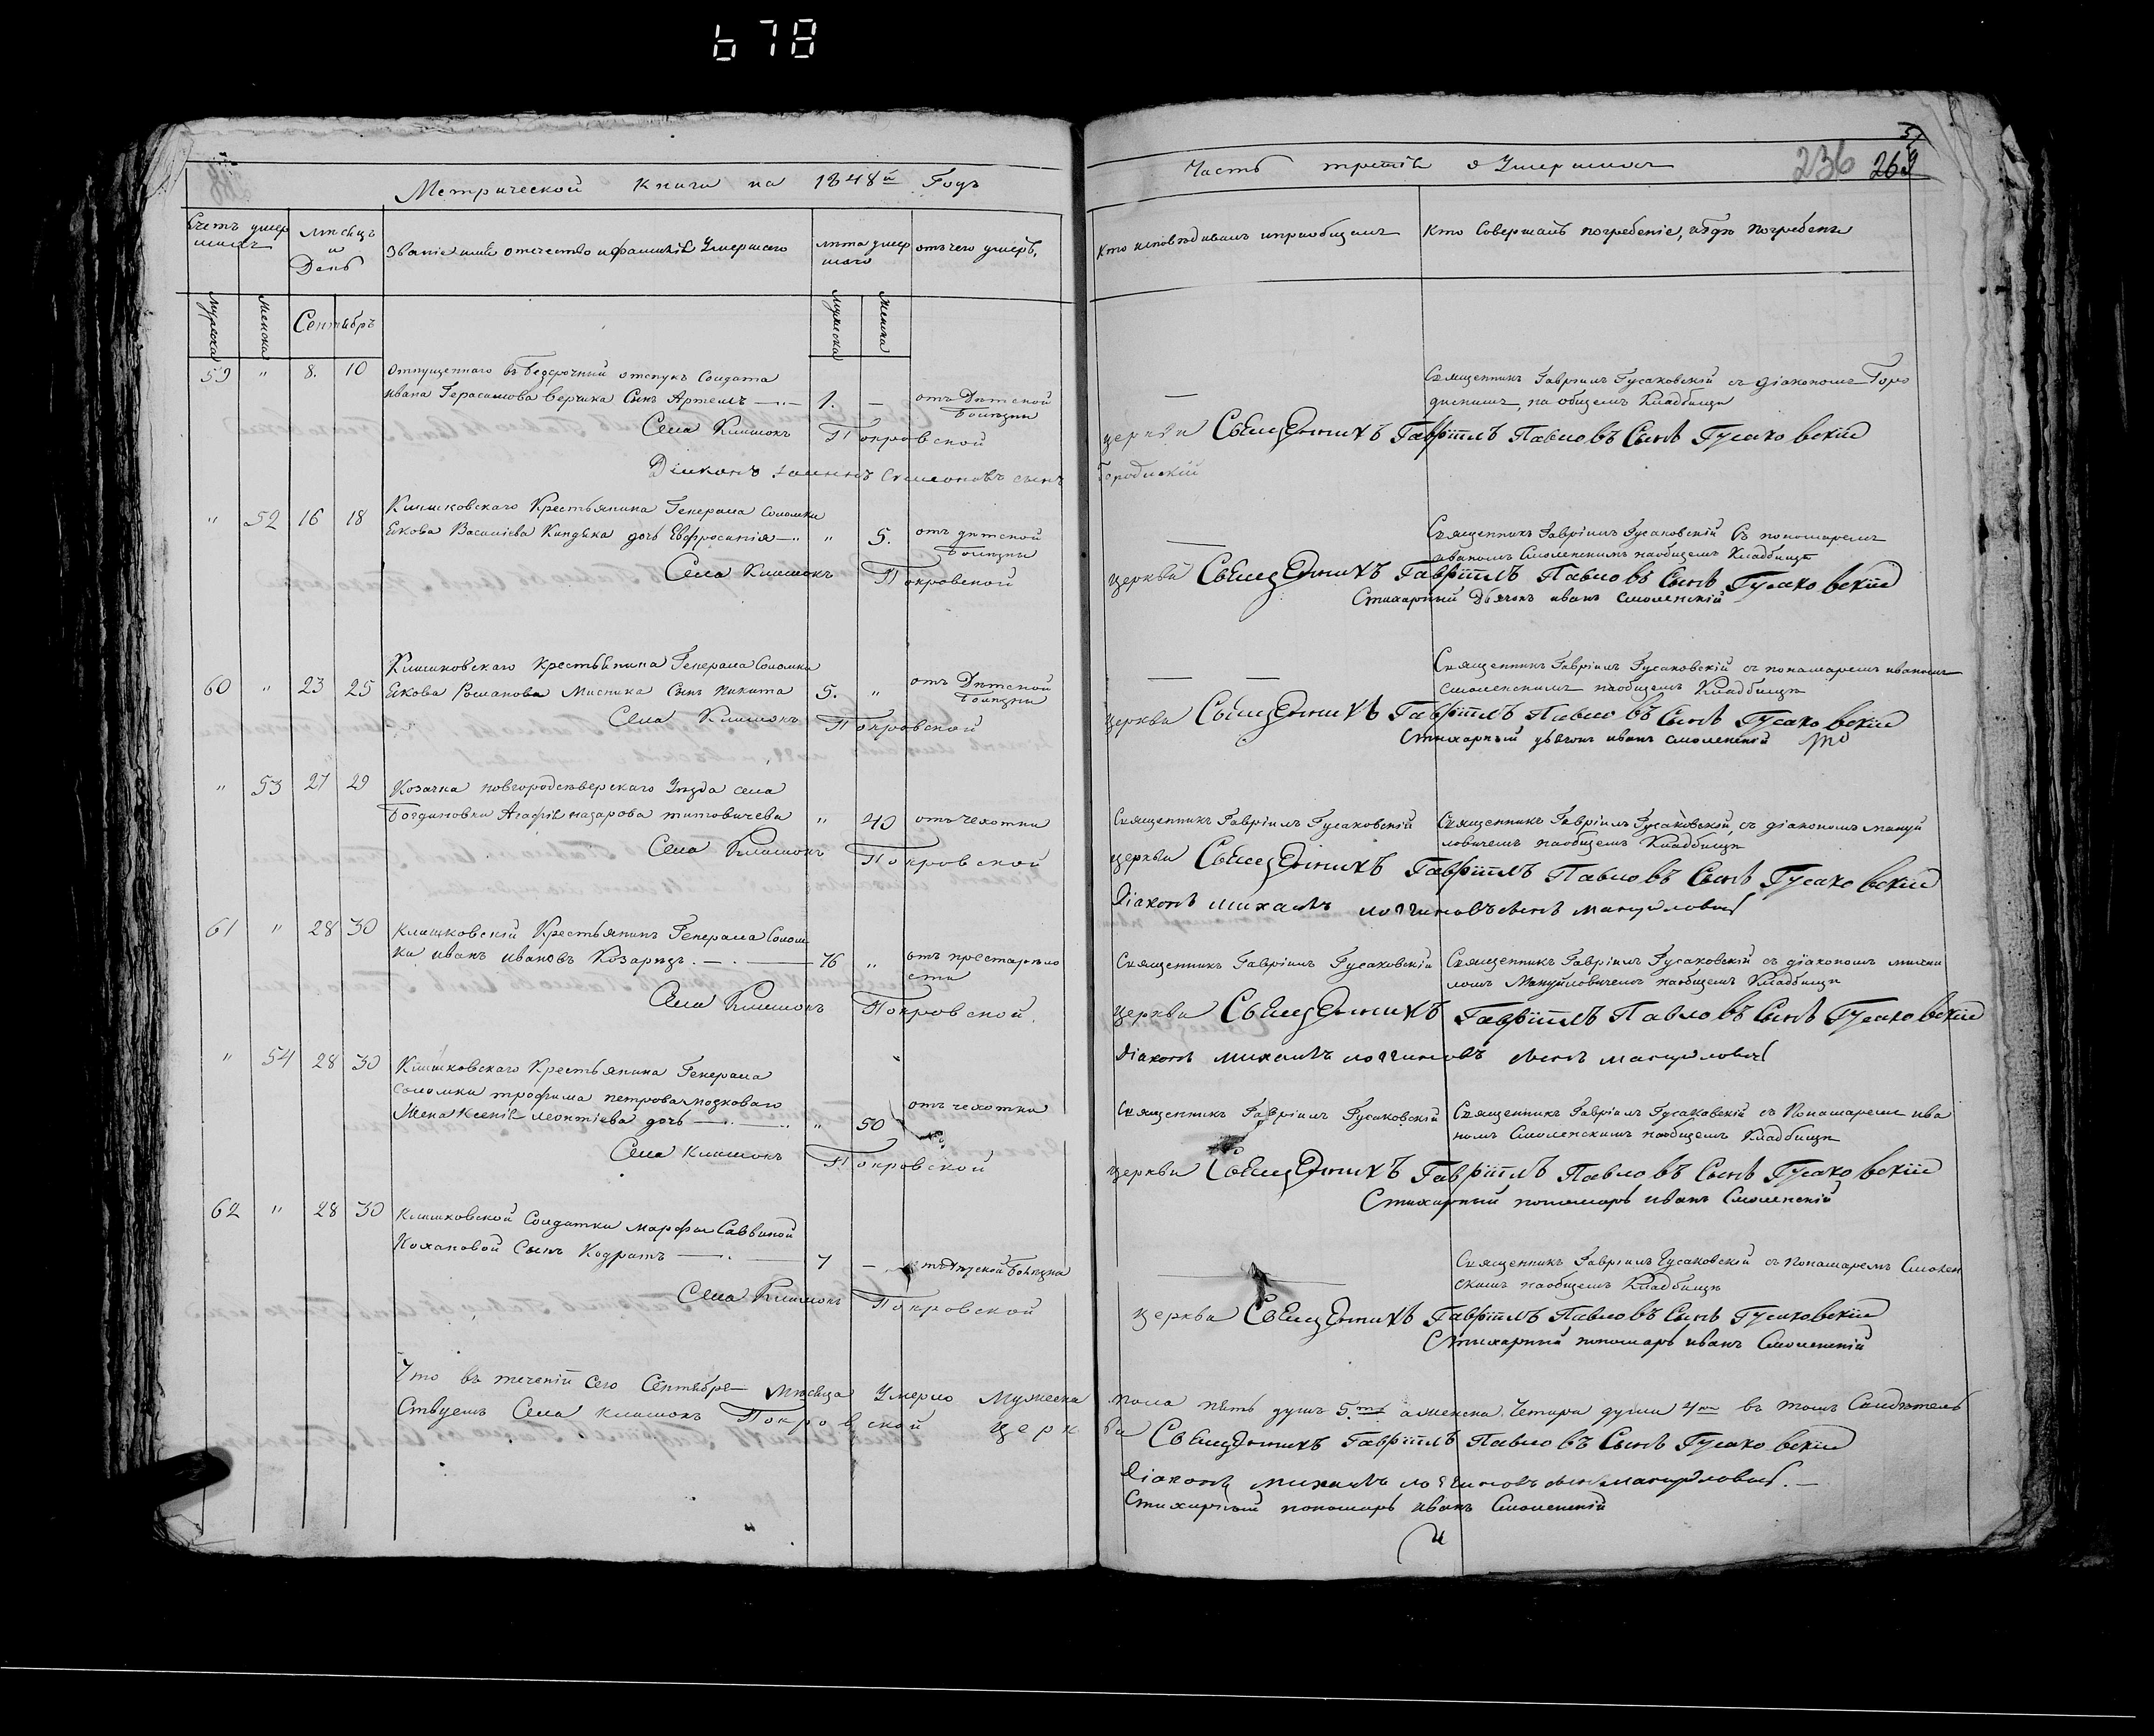 678
Метрической книги на 1848й Годъ
Счетъ умер
шихъ
Мѣсяцъ
и
День
Званіе имя отечество и фамилія Умершаго
лѣта умер
шаго
отъ чего умеръ,
Мужска
Женска
Сентябрь
Мужеска
Женска
59 " 8. 10 Отпущеннаго въ безсрочный отпускъ Солдата
ивана Герасимова Верчика Сынъ Артемъ — 1. — отъ Дѣтской
болѣзни
Села Клишокъ Покровской
Діаконъ Іоаннъ Симеоновъ сынъ
" 52 16 18 Клишковскаго Крестьянина Генерала Соломки
Якова Василіева Киндѣка дочь Евфросинія — " 5. отъ дѣтской
болѣзни
Села Клишокъ Покровской
Клишковскаго крестьянина Генерала Соломки
60 " 23 25 Якова Романова Мисника Сынъ Никита 5. " отъ Дѣтской
болѣзни
Села Клишокъ Покровской
" 53 27 29 Козачка новгородсѣверскаго Уѣзда села
Богдановки Агафія назарова титовичева " 40 отъ чехотки
Села Клишокъ Покровской
61 " 28 30 Клишковскій Крестьянинъ Генерала Солом
ки иванъ ивановъ Козарѣзъ. — 76 " отъ престарѣло
сти
Села Клишокъ Покровской
" 54 28 30 Клишковскаго Крестьянина Генерала
Соломки трофима петрова
Жена Ксенія леонтіева дочь — " 50 отъ чехотки
Села Клишокъ Покровской
62 " 28 30 Клишковской Солдатки Марфы Саввиной
Кохановой Сынъ Кодратъ — 7 — болѣзни
Села Клишокъ Покровской
Что въ теченіи сего Сентября Мѣсяца Умерло Мужеска
Ствуемъ Села клишокъ Покровской церк
Часть третія о Умершихъ
236 269
Кто исповѣдивалъ и пріобщалъ
Кто Совершалъ погребеніе, и гдѣ погребены
Священникъ Гавріилъ Гусаковскій съ діакономъ Горо
дискимъ, на общемъ Кладбищѣ
церкви Священникъ Гавріилъ Павловъ Сынъ Гусаковскій
Городискій
Священникъ Гавріилъ Гусаковскій Съ пономаремъ
иваномъ Смоленскимъ на общемъ Кладбищѣ
церкви Священникъ Гавріилъ Павловъ Сынъ Гусаковскій
Стихарный Дьячокъ иванъ Смоленскій
Священникъ Гавріилъ Гусаковскій съ понамаремъ иваномъ
Смоленскимъ на общемъ Кладбищѣ
церкви Священникъ Гавріилъ Павловъ Сынъ Гусаковскій
Стихарный дьячокъ иванъ смоленскій
Священникъ Гавріилъ Гусаковскій Священникъ Гавріилъ Гусаковскій, съ діакономъ мануй
ловичемъ на общемъ Кладбищѣ
церкви Священникъ Гавріилъ Павловъ Сынъ Гусаковскій
Діаконъ михаилъ логгиновъ сынъ мануйловичъ
Священникъ Гавріилъ Гусаковскій Священникъ Гавріилъ Гусаковскій съ діакономъ михаи
ломъ Мануйловичемъ на общемъ Кладбищѣ
церкви Священникъ Гавріилъ Павловъ Сынъ Гусаковскій
Діаконъ михаилъ логгиновъ сынъ мануйловичъ
Священникъ Гавріилъ Гусаковскій Священникъ Гавріилъ Гусаковскій съ Понамаремъ ива
номъ Смоленскимъ на общемъ Кладбищѣ
церкви Священникъ Гавріилъ Павловъ Сынъ Гусаковскій
Стихарный пономарь иванъ Смоленскій
Священникъ Гавріилъ Гусаковскій съ Понамаремъ Смолен
скимъ на общемъ Кладбищѣ
церкви Священникъ Гавріилъ Павловъ Сынъ Гусаковскій
Стихарный пономарь иванъ Смоленскій
пола пять душъ 5. а женска Четыре души 4 въ томъ Свидѣтель
ви Священникъ Гавріилъ Павловъ Сынъ Гусаковскій
Діаконъ михаилъ логгиновъ сынъ мануйловичъ. —
Стихарный пономарь иванъ Смоленскій